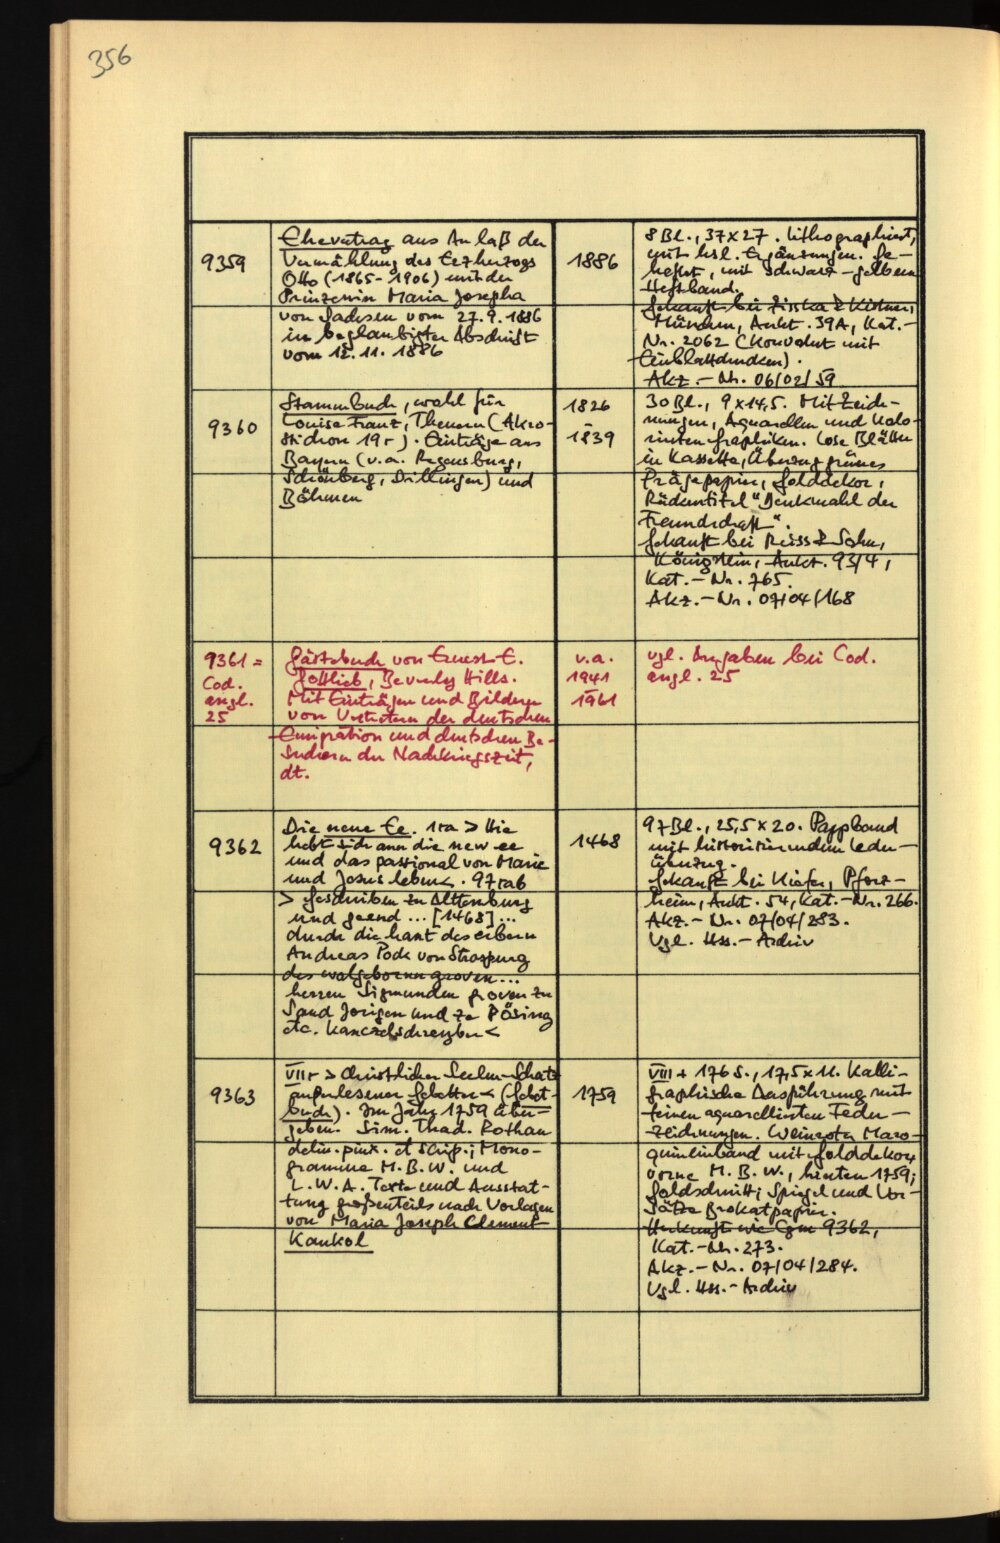 356
9359
Ehevertrag aus Anlaß der
Vermählung des Erzherzogs
Otto (1865-1906) mit der
Prinzessin Maria Josepha
von Sachsen vom 27.9.1886
in beglaubigter Abschrift
vom 12.11.1886
1886
8 Bl., 37x27. Lithographiert,
mit hsl. Ergänzungen. Ge-
heftet, mit schwarz-gelbem
Heftband.
Gekauft bei Zisska & Kistner,
München, Aukt. 39A, Kat.-
Nr. 2062 (Konvolut mit
Einblattdrucken).
Akz.-Nr. 06/02/59
9360
Stammbuch, wohl für
Louise Franz, Theuern (Akro-
stichon 19r). Einträge aus
Bayern (v.a. Regensburg,
Schönberg, Drillingen) und
Böhmen
1826
-
1839
30 Bl., 9x14,5. Mit Zeich-
nungen, Aquarellen und kolo-
rierten Graphiken. Lose Blätter
in Kassette, Überzug grünes
Prägepapier, Golddekor,
Rückentitel "Denkmahl der
Freundschaft".
Gekauft bei Reiss & Sohn,
Königstein, Aukt. 93/4,
Kat.-Nr. 765.
Akz.-Nr. 07/04/168
9361 =
Cod.
angl.
25
Gästebuch von Ernest E.
Gottlieb, Beverley Hills.
Mit Einträgen und Bildern
von Vertretern der deutschen
Emigration und deutschen Be-
suchern der Nachkriegszeit,
dt.
v.a.
1941
-
1961
vgl. Angaben bei Cod.
angl. 25
9362
Die neue Ee. 1ra > Hie
hebt sich ann die new ee
und das passional von Marie
und Jesus leben <. 97rab
> Geschriben zu Alttenburg
und geend ... [1468] ...
durch die hant des erbern
Andreas Pock von Straspurg
des wolgebornn groven ...
herren Sigmunden groven zu
Sand Jorigen und ze Pösing
etc. kanczelschreyber <
1468
97 Bl., 25,5 x 20. Pappband
mit historisierendem Leder-
überzug.
Gekauft bei Kiefer, Pforz-
heim, Aukt. 54, Kat.-Nr. 266.
Akz.-Nr. 07/04/283.
Vgl. Hss.-Archiv
9363
VIIr > Christlicher Seelen-Schatz
außerlesener Gebetter < (Gebet-
buch). Im Jahr 1759 über-
geben. Sim. Thad. Rothan
delin. pinx. et scrip.; Mono-
gramme M.B.W. und
L.W.A. Texte und Ausstat-
tung großenteils nach Vorlagen
von Maria Joseph Clement
Kaukol
1759
VIII + 176 S., 17,5 x 11. Kalli-
graphische Ausführung mit
feinen aquarellierten Feder-
zeichnungen. Weinroter Maro-
quineinband mit Golddekor,
vorne M.B.W., hinten 1759;
Goldschnitt; Spiegel und Vor-
sätze Brokatpapier.
Herkunft wie Cgm 9362,
Kat.-Nr. 273.
Akz.-Nr. 07/04/284.
Vgl. Hss.-Archiv